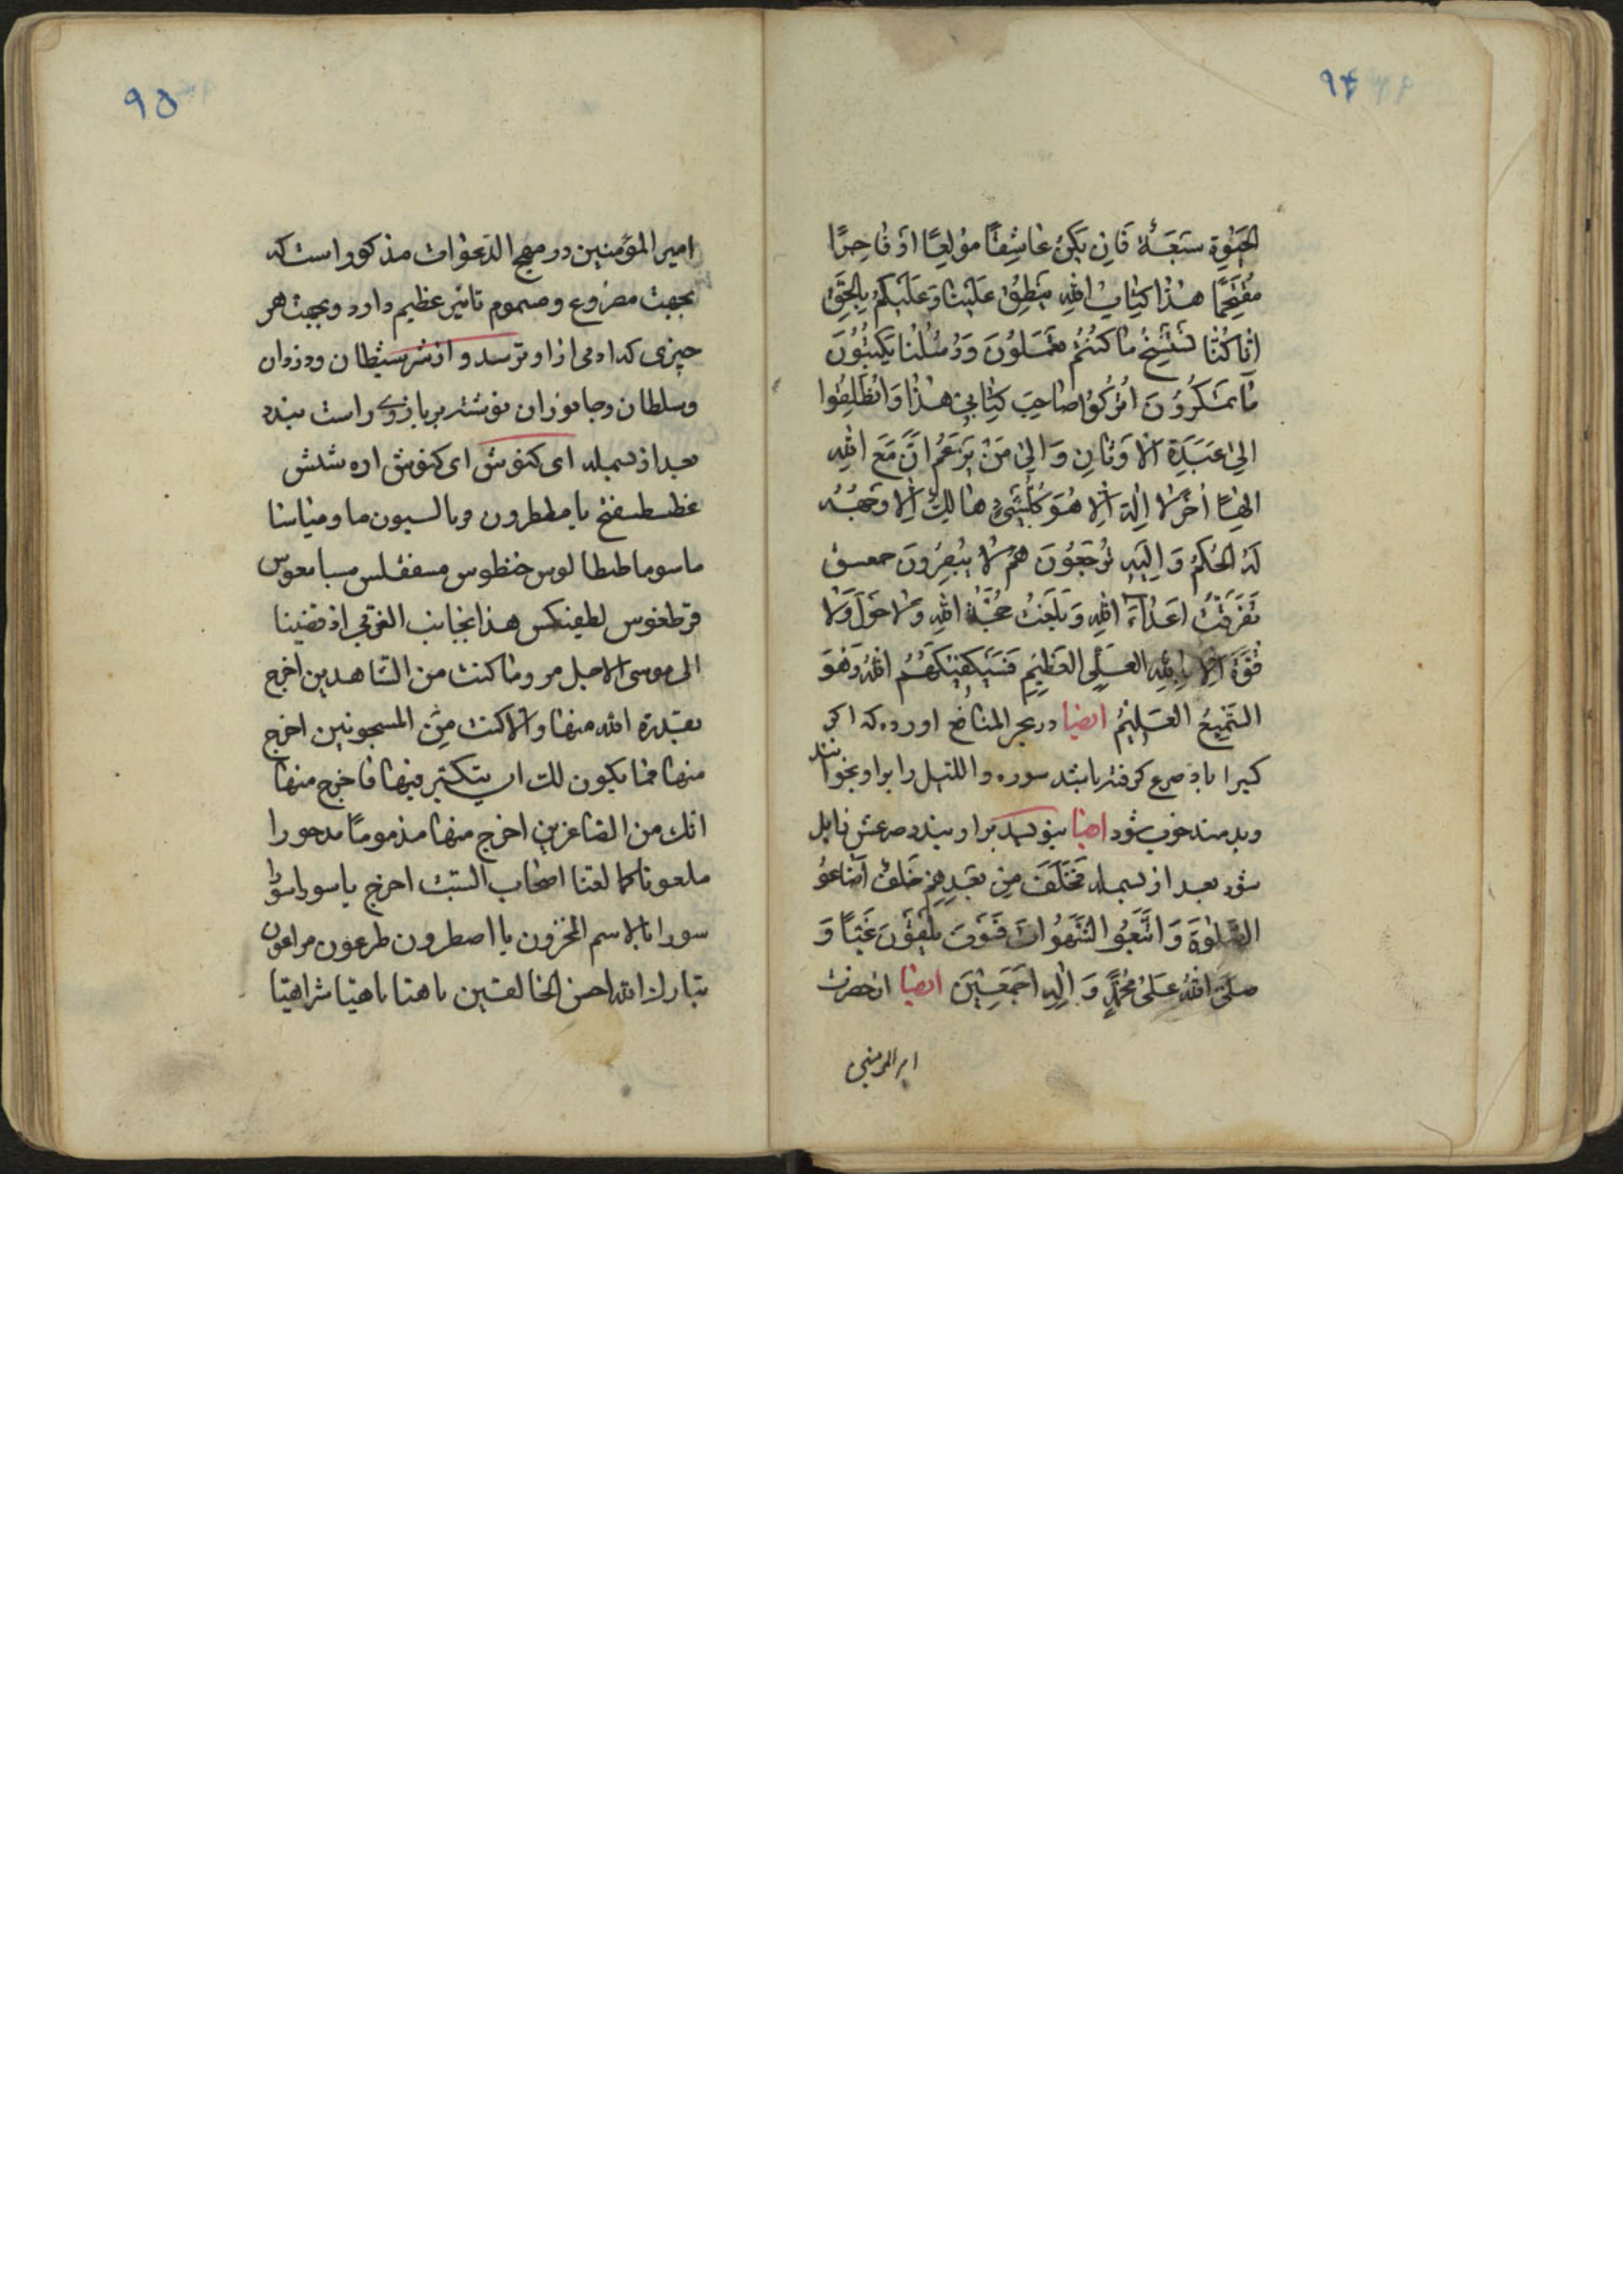 ۹۴
الحیوة سَعَةً فَاِن یَکُن عَاشِقًا مُولِعًا اَو فَاجِرًا
مُقتَحِمًا هٰذا کِتابُ اللهِ یَنطِقُ عَلَینا وَ عَلَیکُم بِالحَقِّ
اِنّا کُنّا نَستَنسِخُ ما کُنتُم تَعمَلُونَ وَ رُسُلُنا یَکتُبُونَ
ما تَمکُرُونَ اُترُکُوا صاحِبَ کِتابی هٰذا وَ انطَلِقُوا
اِلیٰ عَبَدَةِ الاَوثانِ وَ اِلیٰ مَن یَزعَمُ اَنَّ مَعَ اللهِ
اِلٰهًا اٰخَرَ لا اِلٰهَ اِلّا هُوَ کُلُّ شَیءٍ هالِکٌ اِلّا وَجهَهُ
لَهُ الحُکمُ وَ اِلَیهِ تُرجَعُونَ هُم لا یُبصِرُونَ حمعسق
تَفَرَّقَت اَعداءُ اللهِ وَ بَلَغَت حُجَّةُ اللهِ وَ لا حَولَ وَلا
قُوَّةَ اِلّا بِاللهِ العَلِیِّ العَظیمِ فَسَیَکفیکَهُمُ اللهُ وَ هُوَ
السَّمیعُ العَلیمُ ایضا در بحر المنافع اورده که اکر
کسیرا باد صرع کرفته باشد سوره و اللیل را بر او بخوانند
و بدمند خوب شود ایضا بنویسد بر او ببندد صرعش زایل
شود بعد از بسمله فَخَلَفَ مِن بَعدِهِم خَلفٌ اَضاعُو
الصَّلوٰةَ وَ اتَّبَعُوا الشَّهَواتِ فَسَوفَ یَلقَونَ غَیًّا وَ
صَلَّی اللهُ عَلیٰ مُحَمَّدٍ وَ اٰلِهِ اَجمَعینَ ایضا از حضرت
امیر المومنین
۹۵
امیر المؤمنین در مهج الدّعوات مذکور است که
بجهت مصروع و مسموم تاثیر عظیم دارد و بجهت هر
چیزی که ادمی از او ترسد و از شر شیطان و دزدان
و سلطان و جانوران نوشته بر بازوی راست بندد
بعد از بسمله ای کنوش ای کنوش اره شش
عطیطسفنخ یا مططرون قریالسیون ما و ما ساما
ماسوما طیطالوس خنطوس مسفقلس مسامعوس
قرطعوس لطیفکس هذا بجانب الغرّبی اذ قضینا
الی موسی الامر وما کنت من الشّاهدین اخرج
بقدرة الله منها و الّا کنت مِنَ المسجونین اخرج
منها فما یکون لک ان تتکبّر فیها فاخرج منها
انّک من الصّاغرین اخرج منها مذمومًا مدحورا
ملعونا کما لعنّا اصحاب السّبت اخرج یا سورا سورا
سورا بالاسم المخزون یا اصطرون طرعون مراعون
تبارک الله احسن الخالقین یا هتا یا هیّا شراهیّا